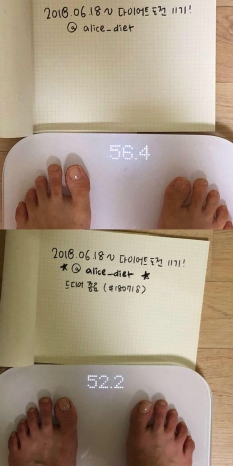 2018.06.18 ~ 다이어트 도전 11기!
@ alice_diet
56.4
2018.06.18 ~ 다이어트 도전 11기!
★ @ alice_diet ★
드디어 종료 (#180718)
52.2